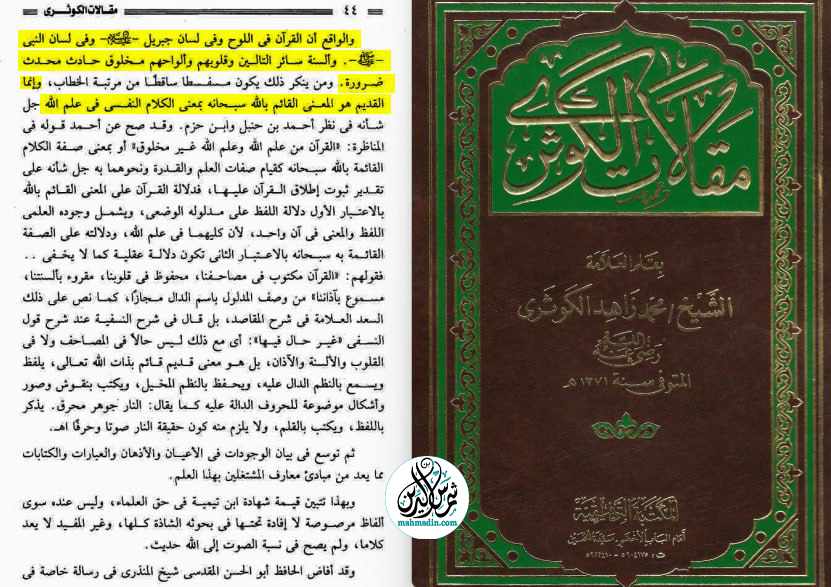 ٤٤
مقالات الكوثرى
والواقع أن القرآن فى اللوح وفى لسان جبريل -عليه السلام- وفى لسان النبى
-ﷺ-. وألسنة سائر التالين وقلوبهم وألواحهم مخلوق حادث محدث
ضرورة. ومن ينكر ذلك يكون مسفسطا ساقطًا من مرتبة الخطاب، وإنما
القديم هو المعنى القائم بالله سبحانه بمعنى الكلام النفسى فى علم الله جل
شأنه فى نظر أحمد بن حنبل وابن حزم. وقد صح عن أحمد قوله فى
المناظرة: «القرآن من علم الله وعلم الله غير مخلوق» أو بمعنى صفة الكلام
القائمة بالله سبحانه كقيام صفات العلم والقدرة ونحوهما به جل شأنه على
تقدير ثبوت إطلاق القرآن عليها، فدلالة القرآن على المعنى القائم بالله
بالاعتبار الأول دلالة اللفظ على مدلوله الوضعى، ويشمل وجوده العلمى
اللفظ والمعنى فى آن واحد، لأن كليهما فى علم الله، ودلالته على الصفة
القائمة به سبحانه بالاعتبار الثانى تكون دلالة عقلية كما لا يخفى ..
فقولهم: «القرآن مكتوب فى مصاحفنا، محفوظ فى قلوبنا، مقروء بألسنتنا،
مسموع بآذاننا» من وصف المدلول باسم الدال مجازًا، كما نص على ذلك
السعد العلامة فى شرح المقاصد، بل قال فى شرح النسفية عند شرح قول
النسفى «غير حال فيها»: أى مع ذلك ليس حالاً فى المصاحف ولا فى
القلوب والألسنة والآذان، بل هو معنى قديم قائم بذات الله تعالى، يلفظ
ويسمع بالنظم الدال عليه، ويحفظ بالنظم المخيل، ويكتب بنقوش وصور
وأشكال موضوعة للحروف الدالة عليه كما يقال: النار جوهر محرق. يذكر
باللفظ، ويكتب بالقلم، ولا يلزم منه كون حقيقة النار صوتا وحرفًا اهـ.
ثم توسع فى بيان الوجودات فى الأعيان والأذهان والعبارات والكتابات
بما يعد من مبادئ معارف المشتغلين بهذا العلم.
وبهذا تتبين قيمة شهادة ابن تيمية فى حق العلماء، وليس عنده سوى
ألفاظ مرصوصة لا إفادة تحتها فى بحوثه الشاذة كلها، وغير المفيد لا يعد
كلاما، ولم يصح فى نسبة الصوت إلى الله حديث.
وقد أفاض الحافظ أبو الحسن المقدسى شيخ المنذرى فى رسالة خاصة فى
مقالات الكوثرى
بقلم العلامة
الشيخ/ محمد زاهد الكوثرى
رضى الله عنه
المتوفى سنة ١٣٧١هـ
المكتبة التوفيقية
أمام الباب الأخضر - سيدنا الحسين
ت: ٥٩٠٤١٧٥ - ٥٩٢٢٤١٠
شمس الدين
mahmadin.com